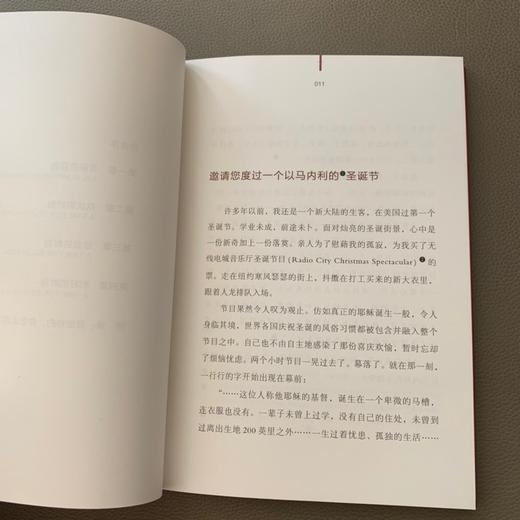 011
邀请您度过一个以马内利的❶圣诞节
许多年以前，我还是一个新大陆的生客，在美国过第一个
圣诞节。学业未成，前途未卜。面对灿亮的圣诞街景，心中是
一份新奇加上一份落寞。亲人为了慰藉我的孤寂，为我买了无
线电城音乐厅圣诞节目(Radio City Christmas Spectacular)❷的
票。走在纽约寒风瑟瑟的街上，抖擞在打工买来的新大衣里，
跟着人龙排队入场。
节目果然令人叹为观止。仿如真正的耶稣诞生一般，令人
身临其境，世界各国庆祝圣诞的风俗习惯都被包含并融入整个
节目之中。自己也不由自主地感染了那份喜庆欢愉，暂时忘却
了烦恼忧虑。两个小时节目一晃过去了。幕落了。就在那一刻，
一行行的字开始出现在幕前：
“……这位人称他耶稣的基督，诞生在一个卑微的马槽，
连衣服也没有。一辈子未曾上过学，没有自己的住处，未曾到
过离出生地 200 英里之外……一生过着忧患、孤独的生活……